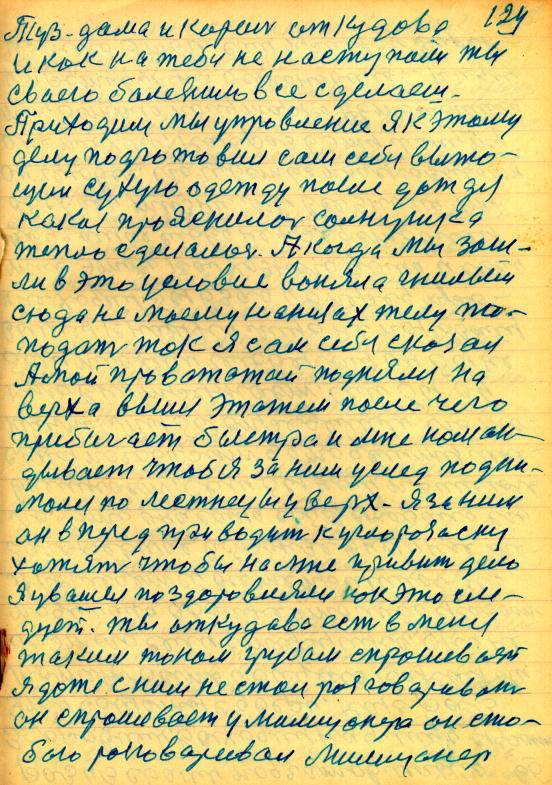 124
Туз-дама и король откудова
и как на тебя не наступали ты
своего болезнию все сделаеш.
Приходим мы управление я к этому
делу подготовил сам себя
сухую одежду после дождя
солнушка
тепло сделалось. А когда мы заш-
ли в это условие воняла гнильем
сюда не моему
подать так я сам себе сказал
А мой провожатай подняли на
верха выш этажем после чего
прибигает быстра и мне коман-
дывает чтоб я за ним услед подни-
мался по лестнецы у верх. Я за ним
он в перед приводит
хотят чтобы на мне привит дело
Я увашел поздоровлялся как это сле-
дует. ты откудава есть меня
таким тоном грубам спрошевает
я даже с ним не стал розговаривать
он спрошевает у милицонера он сто-
бою розговаривал Милицонер